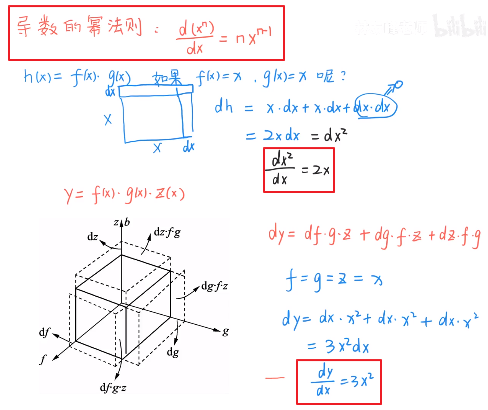 导数的幂法则: d(xⁿ)/dx = nxⁿ⁻¹
h(x) = f(x)·g(x) 如果 f(x)=x , g(x)=x 呢?
dx
x
x dx
dh = x·dx + x·dx + dx·dx → 0
= 2xdx = dx²
dx²/dx = 2x
y = f(x)·g(x)·z(x)
z b
dz
dz·f·g
dg·f·z
g
df
f
dg
df·g·z
dy = df·g·z + dg·f·z + dz·f·g
f = g = z = x
dy = dx·x² + dx·x² + dx·x²
= 3x²dx
— dy/dx = 3x²